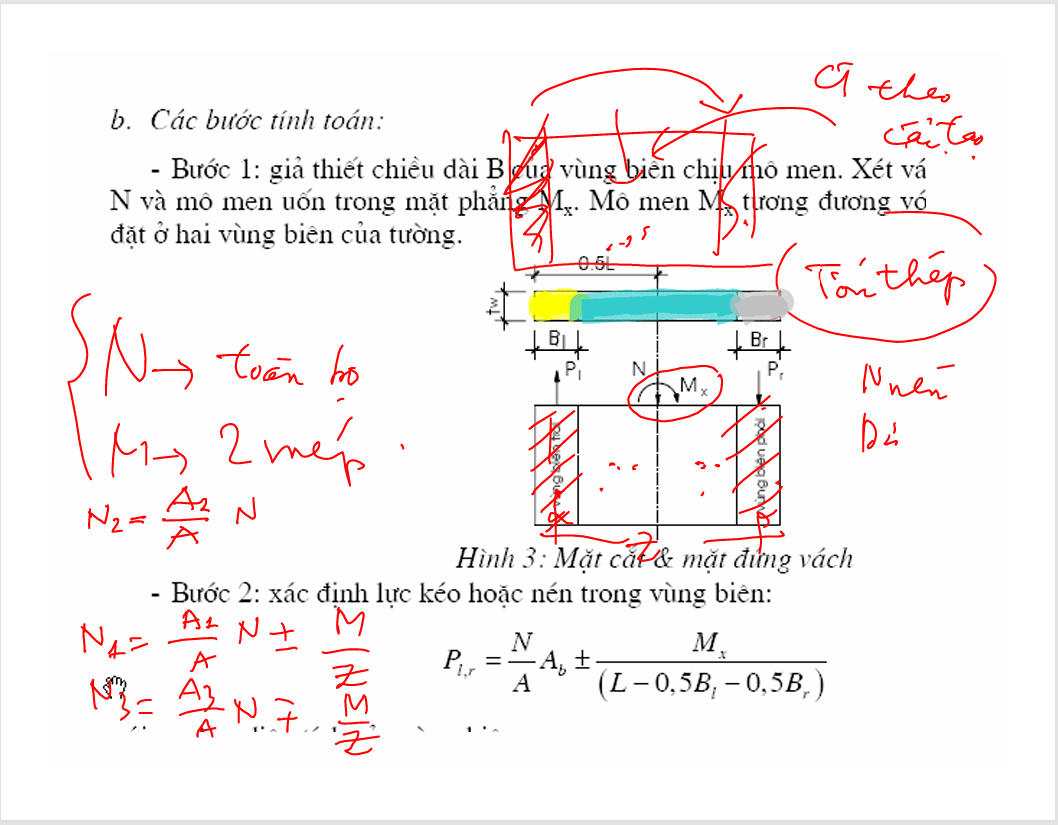 b. Các bước tính toán:
- Bước 1: giả thiết chiều dài B của vùng biên chịu mô men. Xét vá
N và mô men uốn trong mặt phẳng Mx. Mô men Mx tương đương vớ
đặt ở hai vùng biên của tường.
CT theo
cấu tạo
Tính thép
N nén
0.5L
tw
Bl
Br
Pl
N
Mx
Pr
vùng biên trái
vùng biên phải
Z
N → toàn bộ
M → 2 mép
N2 = A2/A N
Hình 3: Mặt cắt & mặt đứng vách
- Bước 2: xác định lực kéo hoặc nén trong vùng biên:
N1 = A1/A N ± M/Z
Pl,r = N/A Ab ± Mx/(L − 0,5Bl − 0,5Br)
N3 = A3/A N ∓ M/Z